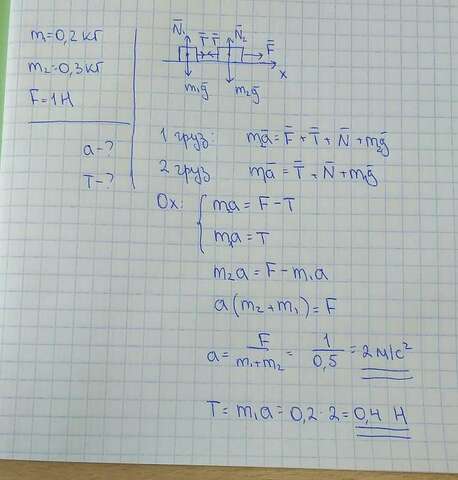 m₁=0,2 кг
m₂=0,3 кг
F=1 Н
a-?
T-?
N̄₁ T̄ T̄ N̄₂ F̄
x
m₁ḡ m₂ḡ
1 груз: mā = F̄ + T̄ + N̄ + m₂ḡ
2 груз mā = T̄ + N̄ + m₁ḡ
Ox: m₂a = F - T
m₁a = T
m₂a = F - m₁a
a(m₂+m₁) = F
a = F/(m₁+m₂) = 1/0,5 = 2 м/с²
T = m₁a = 0,2 · 2 = 0,4 Н